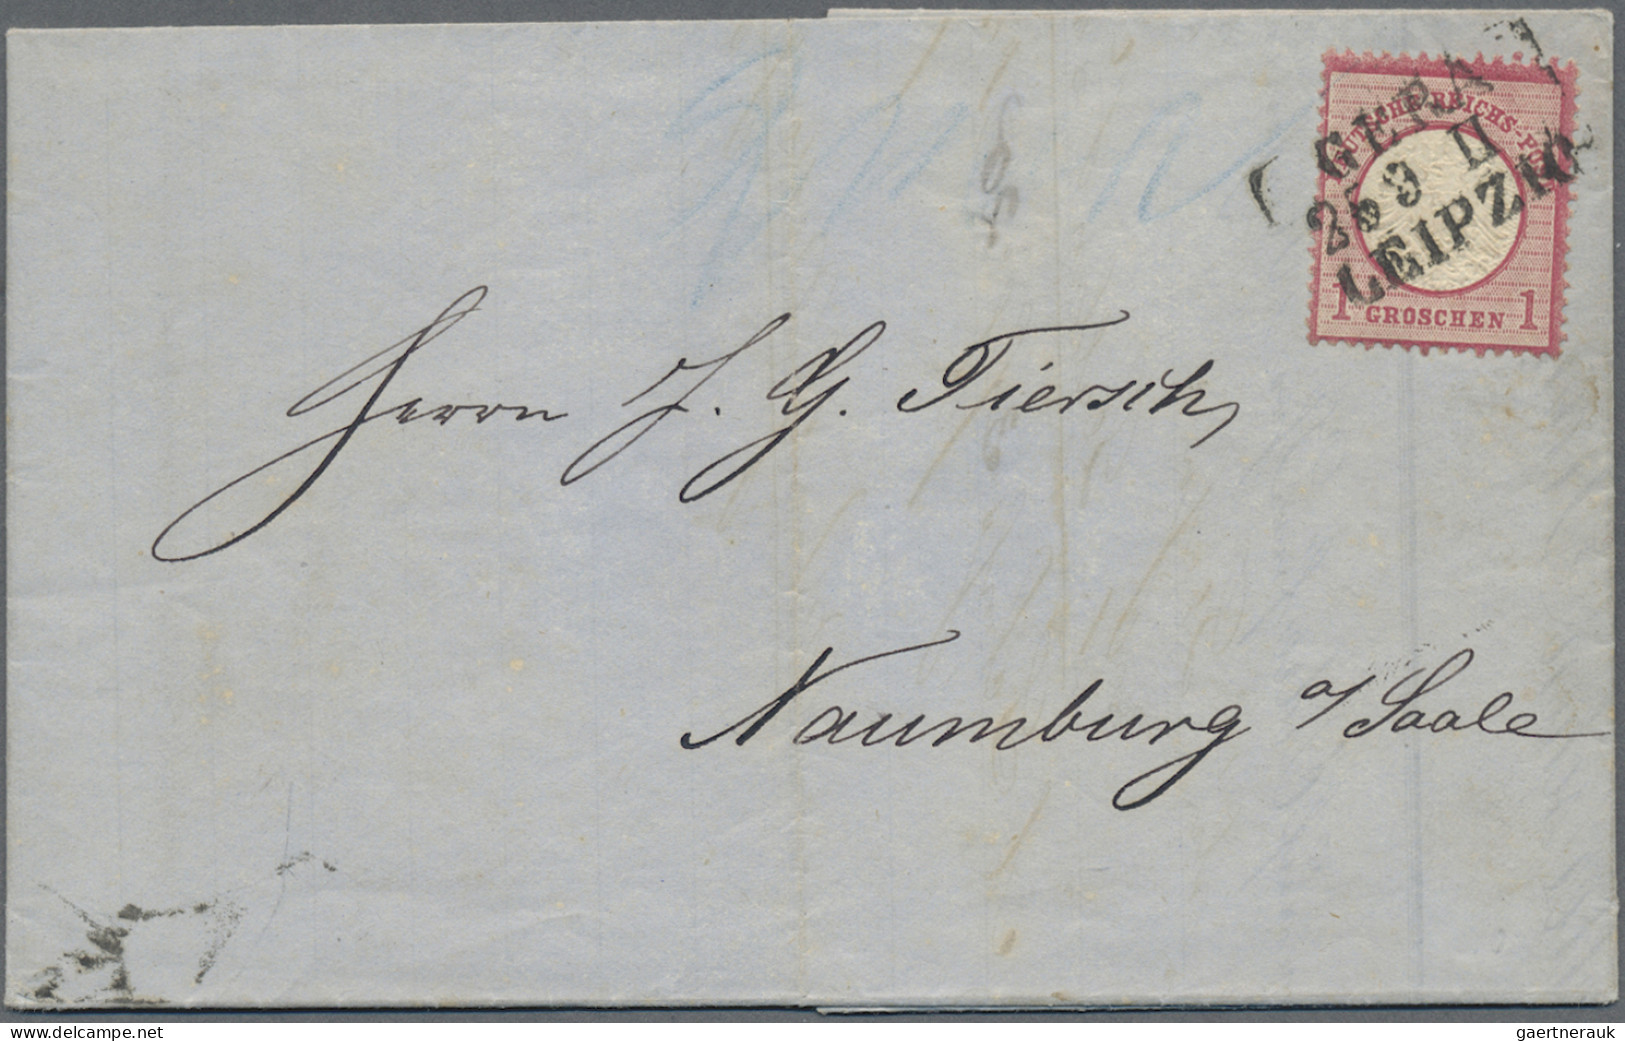 GERA
28 9 II
LEIPZIG
DEUTSCHE REICHS-POST
1 GROSCHEN 1
Herrn J. G. Tiersch,
Naumburg a/Saale
www.delcampe.net
gaertnerauk